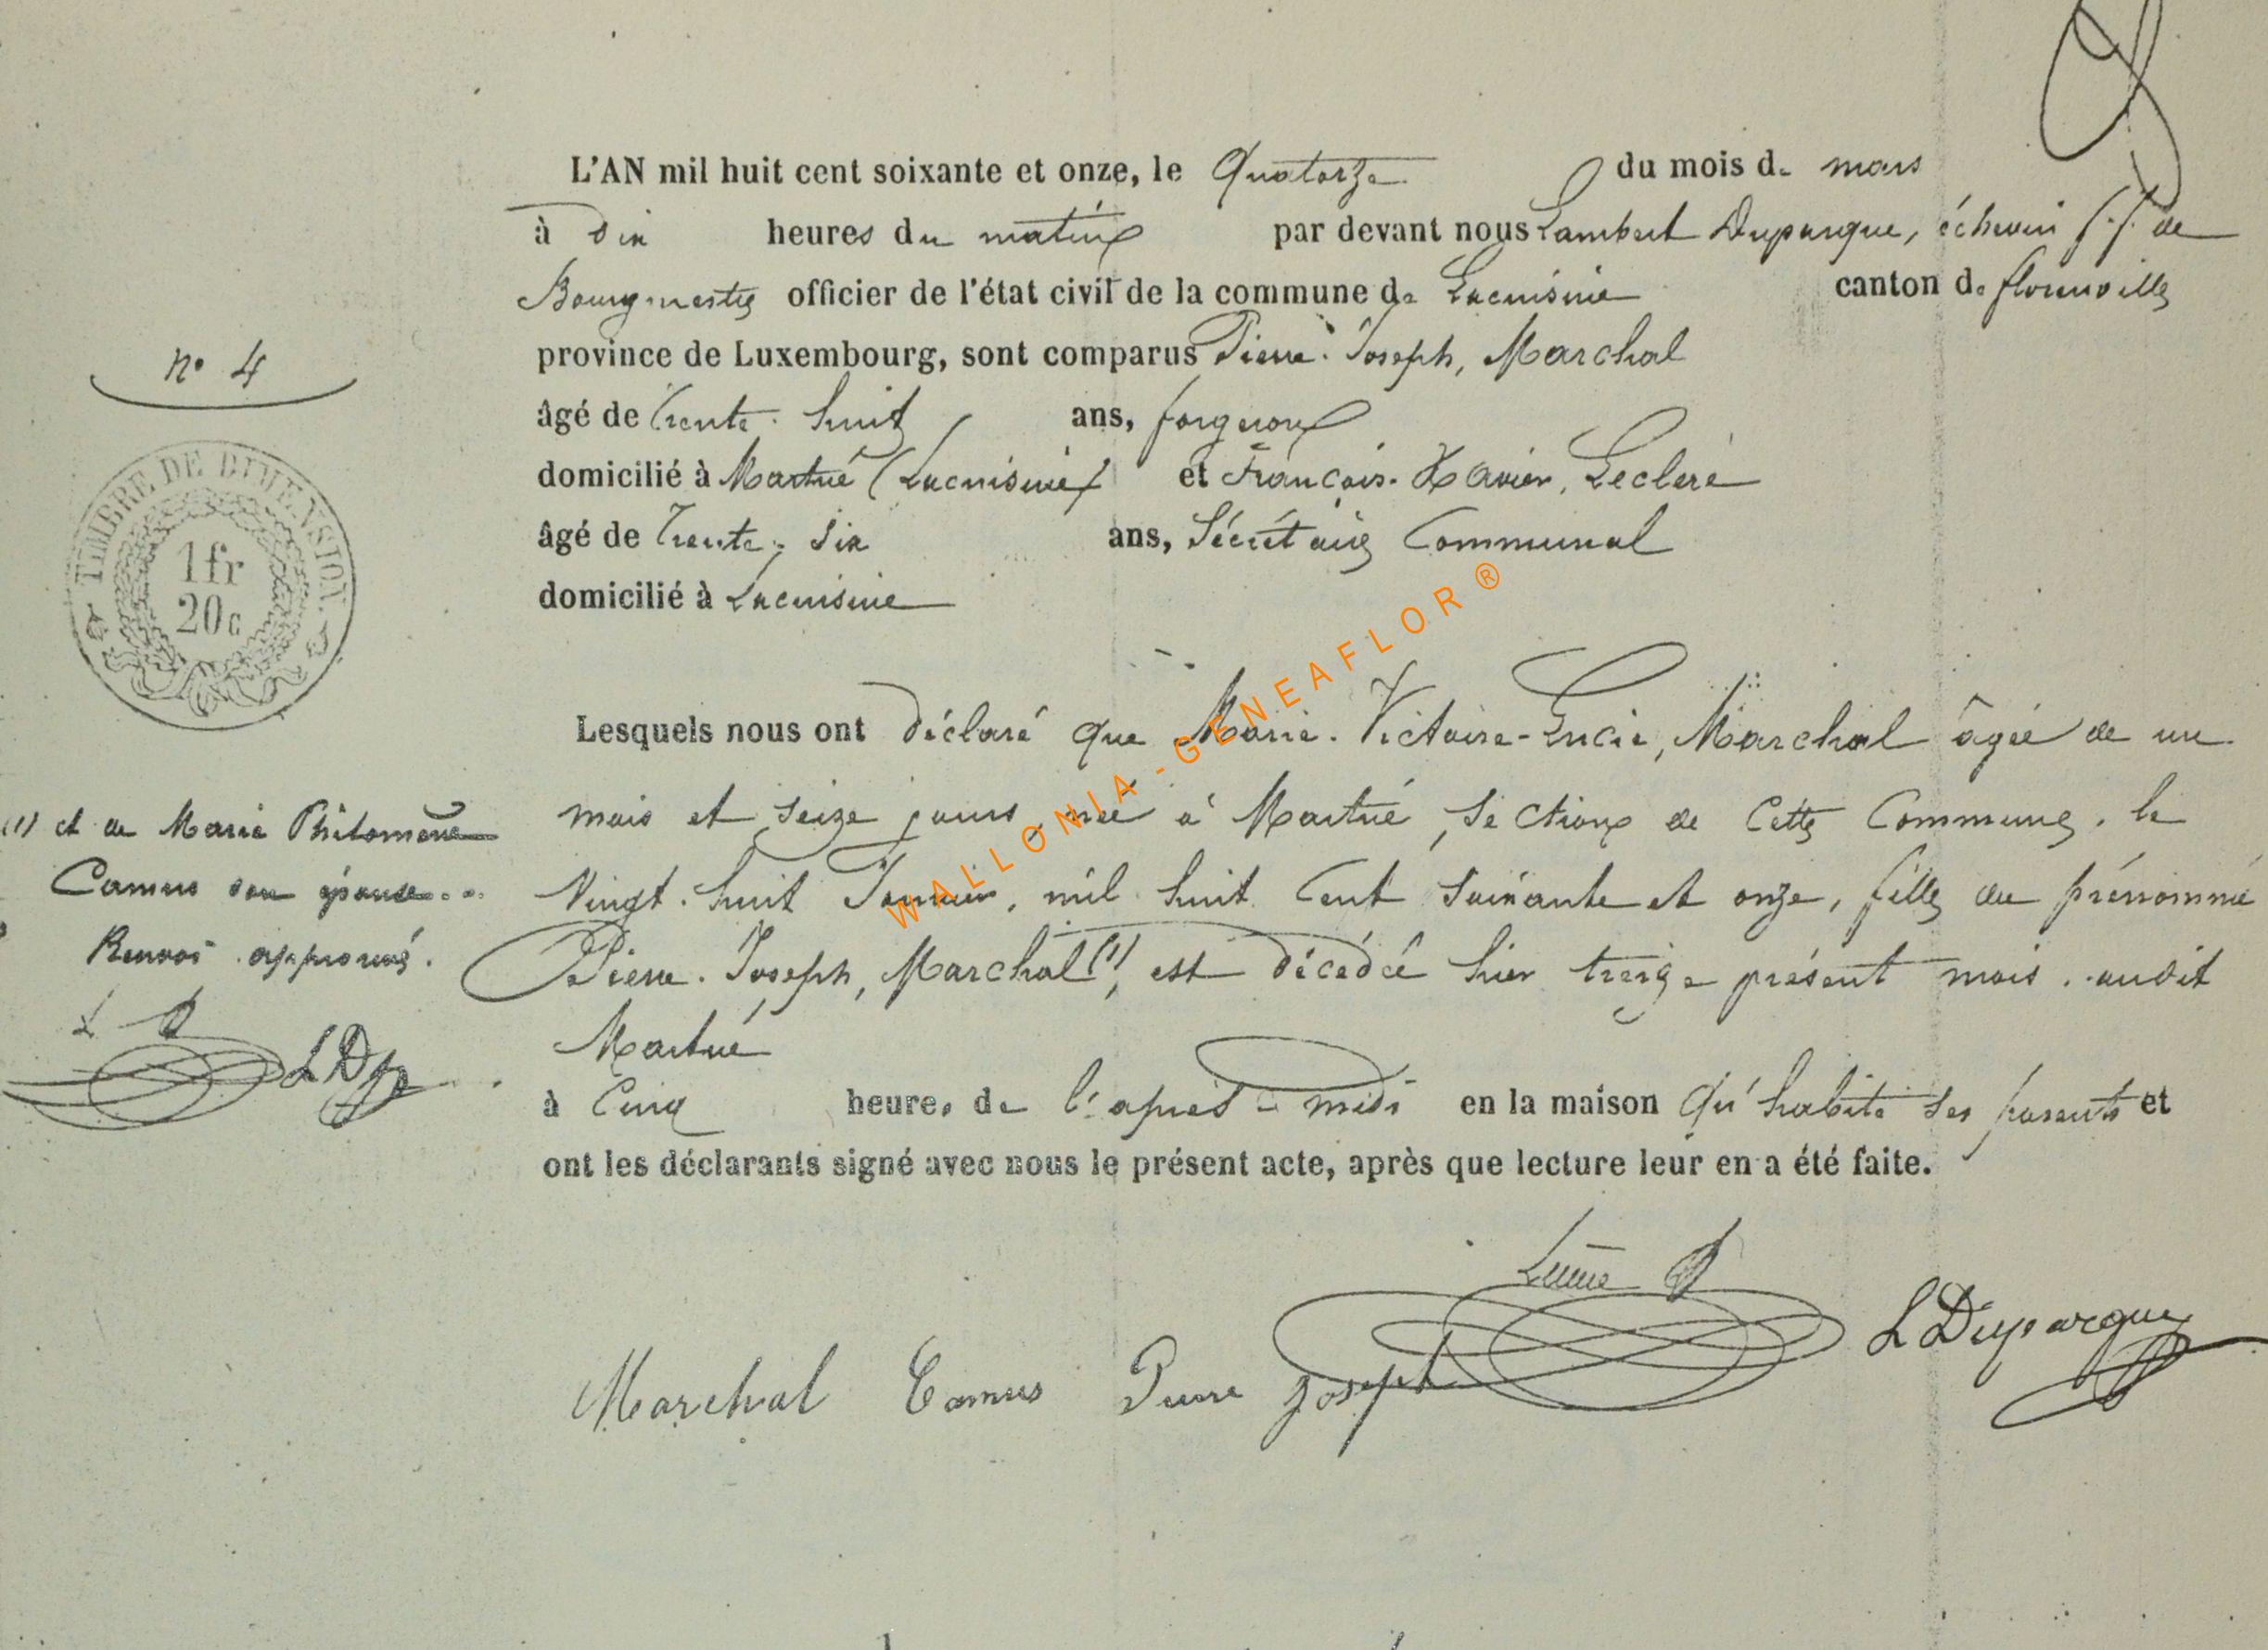 L'AN mil huit cent soixante et onze, le Quatorze du mois de mars
à Dix heures du matin par devant nous Lambert Duparque, échevin f.f. de
Bourgmestre officier de l'état civil de la commune de Lacuisine canton de florenville
province de Luxembourg, sont comparus Pierre-Joseph, Marchal
nº 4
âgé de trente-huit ans, forgeron
domicilié à Martué (Lacuisine) et François-Xavier, Leclerc
âgé de Trente-six ans, Sécrétaire Communal
domicilié à Lacuisine
TIMBRE DE DIMENSION.
1 fr
20 c
Lesquels nous ont déclaré que Marie-Victoire-Lucie, Marchal âgée de un
mois et seize jours, née à Martué, section de cette Commune, le
Vingt-huit Janvier, mil huit Cent soixante et onze, fille du prénommé
Pierre-Joseph, Marchal (1), est décédée hier treize présent mois, audit
Martué
à Cinq heures de l'après-midi en la maison qu'habite ses parents et
ont les déclarants signé avec nous le présent acte, après que lecture leur en a été faite.
(1) et de Marie Philomène
Camus son épouse...
Renvoi approuvé.
L D
LDp
L Duparque
Marchal Camus Pierre Joseph
WALLONIA-GENEAFLOR®